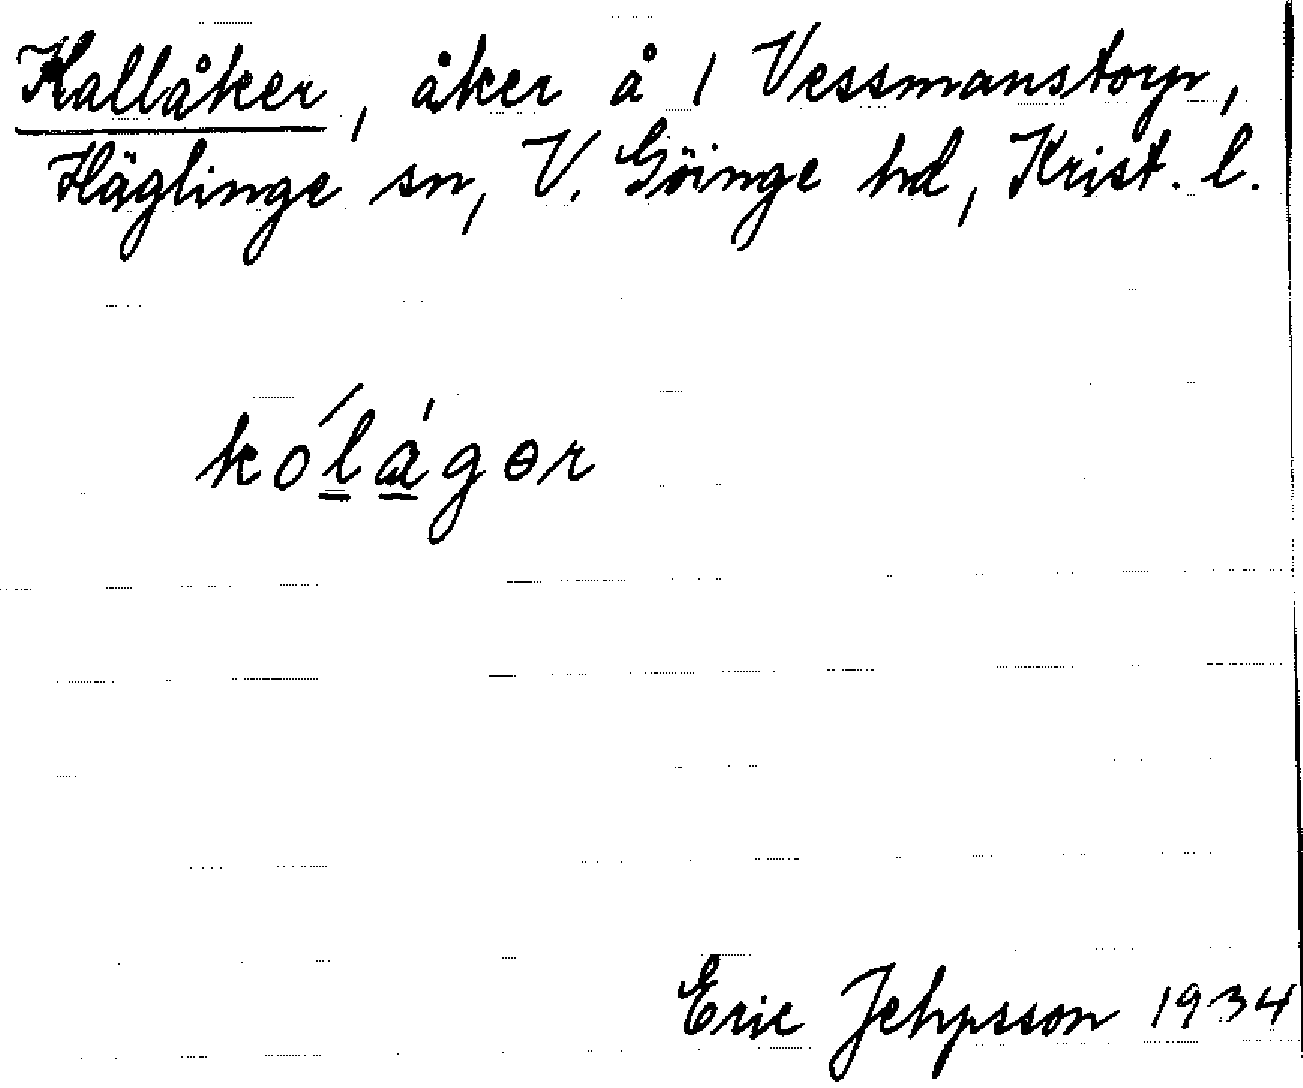 Kallåker, åker å 1 Vessmanstorp,
Häglinge sn, V. Göinge hd, Krist. l.
kolagər
Eric Jehpsson 1934